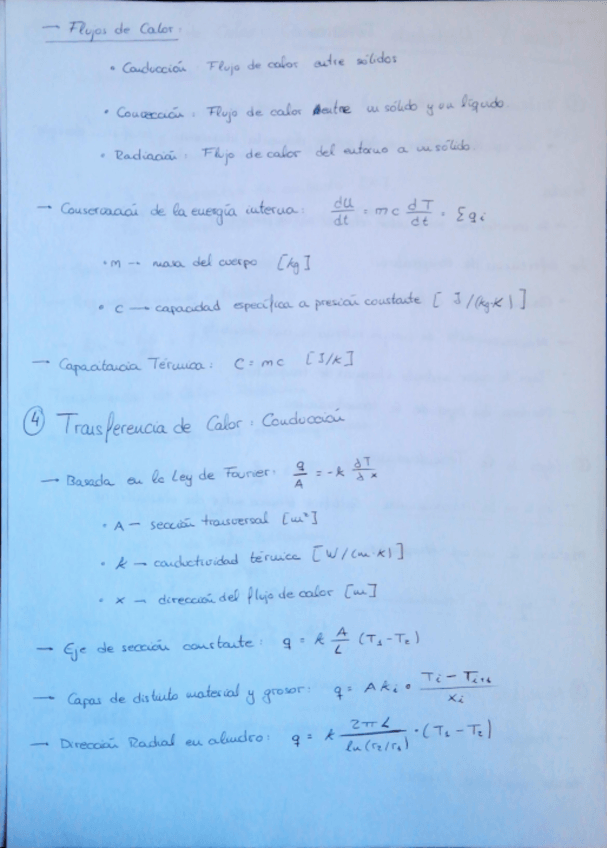 → Flujos de Calor:
• Conducción: Flujo de calor entre sólidos
• Convección: Flujo de calor entre un sólido y un líquido
• Radiación: Flujo de calor del entorno a un sólido
→ Conservación de la energía interna: dU/dt = mc dT/dt = Σqi
• m → masa del cuerpo [kg]
• c → capacidad específica a presión constante [J/(kg·K)]
→ Capacitancia Térmica: C = mc [J/K]
④ Transferencia de Calor: Conducción
→ Basada en la Ley de Fourier: q/A = -k ∂T/∂x
• A → sección transversal [m²]
• k → conductividad térmica [W/(m·K)]
• x → dirección del flujo de calor [m]
→ Eje de sección constante: q = k A/L (T₁ - T₂)
→ Capas de distinto material y grosor: q = A kᵢ • (Tᵢ - Tᵢ₊₁)/xᵢ
→ Dirección Radial en cilindro: q = k 2πL/ln(r₂/r₁) • (T₁ - T₂)